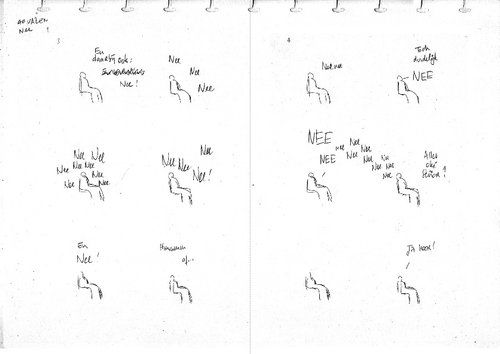 Nee !
3
En
daarbij ook:
Nee !
Nee
Nee
Nee
Nee Nee
Nee Nee Nee
Nee Nee
Nee
Nee
Nee Nee
Nee!
En
Nee!
of...
4
Nee nee
Toch
duidelijk
NEE
NEE
NEE
nee Nee
Nee Nee
Nee Nee
Nee Nee
Nee
Alles
oké
Señor?
Ja hoor!